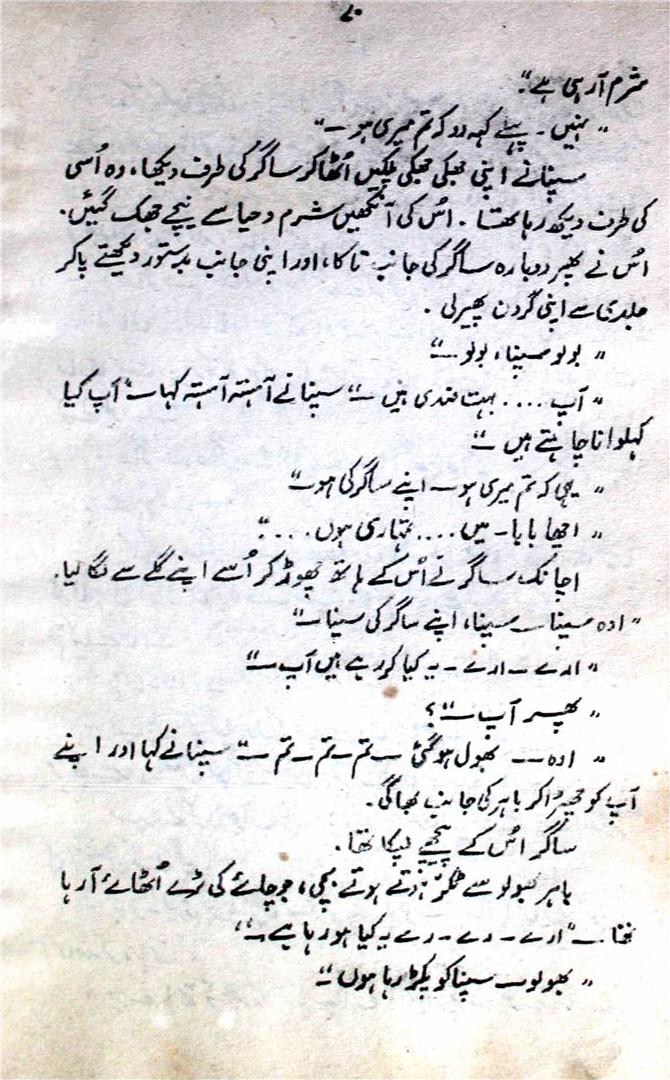 ۷۰
شرم آرہی ہے“
”نہیں۔ پہلے کہہ دو کہ تم میری ہو۔“
سپنا نے اپنی جھکی جھکی پلکیں اُٹھا کر ساگر کی طرف دیکھا، وہ اُسی
کی طرف دیکھ رہا تھا۔ اُس کی آنکھیں شرم و حیا سے نیچے جھک گئیں۔
اُس نے پھر دوبارہ ساگر کی جانب تاکا، اور اپنی جانب بدستور دیکھتے پاکر
جلدی سے اپنی گردن پھیر لی۔
”بولو سپنا، بولو۔“
”آپ .... بہت ضدی ہیں۔“ سپنا نے آہستہ آہستہ کہا۔ ”آپ کیا
کہلوانا چاہتے ہیں۔“
”یہی کہ تم میری ہو۔ اپنے ساگر کی ہو۔“
”اچھا بابا۔ میں .... تمہاری ہوں ....“
اچانک ساگر نے اُس کے ہاتھ چھوڑ کر اُسے اپنے گلے سے لگا لیا۔
”اوہ سپنا۔ سپنا، اپنے ساگر کی سپنا۔“
”ارے۔ ارے۔ یہ کیا کر رہے ہیں آپ۔“
”پھر آپ۔“؟
”اوہ۔۔ بھول ہوگئی۔ تم۔ تم۔ تم۔“ سپنا نے کہا اور اپنے
آپ کو چھڑا کر باہر کی جانب بھاگی۔
ساگر اُس کے پیچھے لپکا تھا۔
باہر بھولو سے ٹکر ہوتے ہوتے بچی، جو چائے کی ٹرے اُٹھائے آ رہا
تھا۔ ”ارے۔ رے۔ رے یہ کیا ہو رہا ہے۔“
”بھولو۔ سپنا کو پکڑ رہا ہوں۔“